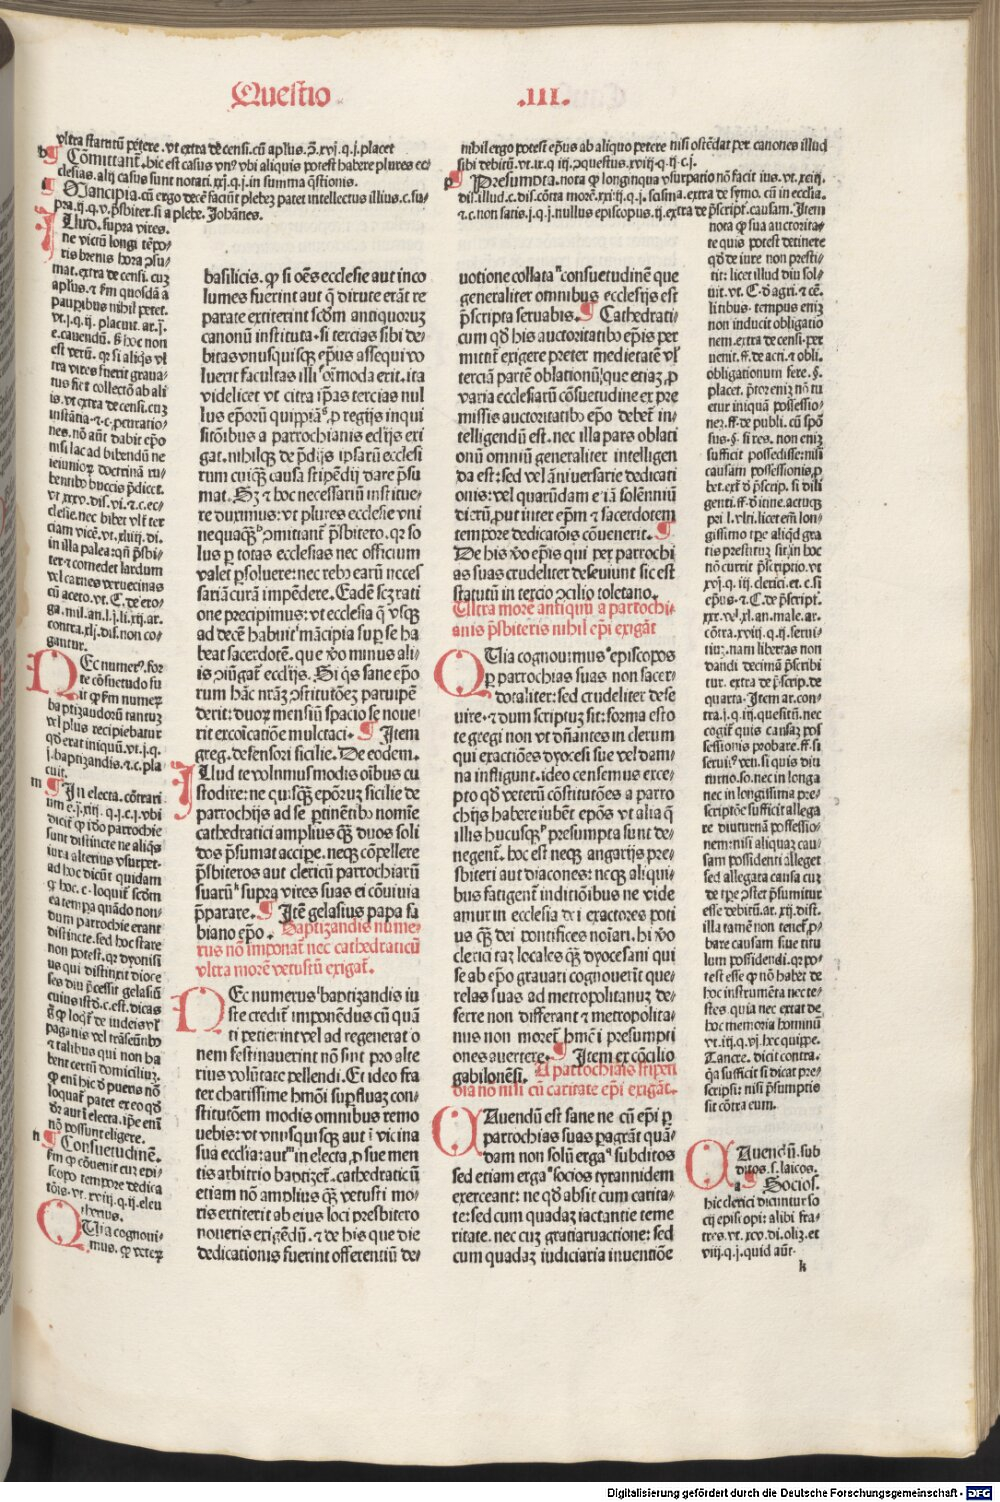 Questio .III.
vltra statutū petere. vt extra de censi. cū aplus. x. xvj. q. j. placet
Cōmittant. hic est casus vn⁹ vbi aliquis potest habere plures ec
clesias. alij casus sunt notati. xxj. q. j. in summa q̄stionis.
Mancipia. cū ergo decē faciūt plebez patet intellectus illius. c. su
pra. ij. q. v. p̄sbiter. si a plebe. Johānes.
Illud. supra vires.
ne victū longi tēpo
ris brevis hora ↄsu
mat. extra de censi. cuz
aplus. ⁊ km quosdā a
pauꝑibus nihil petet.
vt. j. q. ij. placuit. ar. j̄.
e. cauendū. §. hoc non
est verū. qꝛ si aliqs vl
tra vires fuerit graua
tus sic̄t collectō ab ali
is. vt extra de censi. cuz
instātia. ⁊ c. ꝓcuratio
nes. nō aūt dabit epō
nisi lac ad bibendū ne
ieiunioꝝ doctrinā ru
bentibꝰ buccis p̄dicet.
vt. xxxv. dis. vi. ⁊ c. ec
clesie. nec bibet vlt̄ ter
ciam vicē. vt. xliiij. di.
in illa palea: qn̄ p̄sbi
ter ⁊ comedet lardum
vel carnes veruecinas
cū aceto. vt. C. de ero
ga. mil. an. l. j. li. xij. ar.
contra. xlj. dis. non co
gantur.
Nec numer⁹. for
te cōsuetudo fu
it ꝙ km numeꝝ
baptizandorū tantuz
vel plus recipiebatur
qd̓ erat iniquū. vt. j. q.
j. baptizandis. ⁊ c. pla
cuit.
In electa. cōtrari
um e. j. xiij. q. j. c. j. vbi
dicit ꝙ ido parrochie
sunt distincte ne aliqs
iura alterius vsurpet.
ad hoc dicūt quidam
ꝙ hoc. c. loquit̄ scdm
ea tempa quādo non
dum parrochie erant
distincte. sed hoc stare
non potest. qꝛ dyonisi
us qui distinxit dioce
ses diu p̄cessit gelasiū
cuius istd̓. c. est. dicas
ꝙ ꝙ loqt̄ de iudeis vl̓
paganis vel trāseūtibꝰ
⁊ talibus qui non ha
bent certū domiciliuz.
ꝙ eni hic d̓ pueris nō
loquat̄ patet ex eo qd̓
dꝛ aut ī electa. ip̄e enī
nō possunt eligere.
Consuetudinē.
km ꝙ cōuenit cuz epi
scopo tempore dedica
tōis. vt. xviij. q. ij. eleu
therius.
Quia cognoui
mus. ꝙ veteꝝ
basilicis. ꝙ si oēs ecclesie aut inco
lumes fuerint aut q̄ dirute erāt re
parate extiterint scd̄m antiquoruz
canonū instituta. si tercias sibi de
bitas vnusquisqꝫ ep̄us assequi vo
luerit facultas illi oīmoda erit. ita
videlicet vt citra ip̄as tercias nul
lus epōrū quippiā ꝓ regijs inqui
sitōibus a parrochianis eccl̓ijs exi
gat. nihilqꝫ de p̄dijs ipsarū ecclesi
rum cuiqꝫ̄ causa stipēdij dare p̄su
mat. Sꝫ ⁊ hoc necessariū instituē
re duximus: vt plures ecclesie vni
nequaqꝫ̄ ᵇmittant̄ p̄sbitero. qꝛ so
lus ꝑ totas ecclesias nec officium
valet ꝑsoluere: nec rebꝰ earū neces
sariā curā impēdere. Eadē scꝫ rati
one precipimus: vt ecclesia q̄ vsqꝫ
ad decē habuit ˢmācipia suꝑ se ha
beat sacerdotē. que vo minus ali
is ↄiūgat̄ eccl̓ijs. Si qs sane epō
rum hāc nr̄aꝫ ↄstitutōeꝫ paruipē
derit: duoꝝ mensiū spacio se noue
rit excoīcatiōe mulctari. Item
greg. defensori sicilie. De eodem.
Illud te volumus modis oībus cu
stodire: ne quisqꝫ epōruz sicilie de
parrochijs ad se ꝑtinētibꝰ noīe
cathedratici amplius qꝫ̄ duos soli
dos p̄sumat accipe. neqꝫ cōpellere
p̄sbiteros aut clericū parrochiarū
suarū ᵏsupra vires suas ei cōuiuia
p̄parare. Itē gelasius papa fa
biano epō. Baptizandis nume
rus nō imponat̄ nec cathedraticū
vltra morē vetustū exigat.
Nec numerus ˡbaptizandis iu
ste credit̄ imponēdus cū quā
ti petierint vel ad regenerat o
nem festinauerint nō sint pro alte
rius volūtate pellendi. Et ideo fra
ter charissime hmōi suꝑfluaꝫ con
stitutōem modis omnibus remo
uebis: vt vnusquisqꝫ aut ī vicina
sua ecclīa: autᵐ in electa ꝓ sue men
tis arbitrio baptizet̄. cathedraticū
etiam nō amplius qꝫ̄ vetusti mo
ris extiterit ab eius loci presbitero
noueris exigēdū. ⁊ de his que die
dedicationis fuerint offerentiū de
nihil ergo potest epus ab aliquo petere nisi ostēdat per canones illud
sibi debitū. vt. ix. q. iij. ↄquestus. xviij. q. ij. c. j.
Presumpta. nota ꝙ longinqua vsurpatio nō facit ius. vt. xciij.
dis. illud. c. dis. cōtra morē. xxi. ij. q. j. scisma. extra de symo. cū in ecclia.
⁊ c. non satis. j. q. j. nullus episcopus. ij. extra de p̄script. causam. Item
nota ꝙ sua auctorita
te quis potest detinere
qd̓ de iure non presti
tit: licet illud diu sol
uit. vt. C. d̓ agri. ⁊ cē.
li. tibus. tempus eniꝫ
non inducit obligatio
nem. extra de censi. per
uenit. ff. de acti. ⁊ obli.
obligationum fere. §.
placet. p̄toꝛ eniꝫ nō tu
etur iniquā possessio
neꝫ. ff. de publi. cū spō
sus. §. si res. non eniꝫ
sufficit possedisse: nisi
causam possessionis ꝓ
bet. ext̄ d̓ p̄scrip. si dili
genti. ff. d̓ itine. actuqꝫ
pri. l. vlti. licet em̄ lon
gissimo tpe aliqd̓ gra
tis prestituꝫ sit. in hoc
nō currit p̄scriptio. vt
xvj. q. iij. clerici. et. c. si
ep̄us. ⁊. C. de p̄script̄.
xxx. vel. xl. an. male. ar.
cōtra. xviij. q. ij. serui
tiuꝫ. nam libertas non
dandi decimā p̄scribi
tur. extra de p̄scrip. de
quarta. Item ar. con
tra. j. q. iij. quesitū. nec
cogit̄ quis causaꝫ pos
sessionis probare. ff. si
serui⁹ ven. si quis diu
turno. so. nec in longa
nec in longissima pre
scriptōe sufficit allega
re diuturnā possessio
nem: nisi aliquaꝫ cau
sam possidenti alleget
sed allegata causa cuz
de tpe ↄstet p̄sumitur
esse debitū. ar. xij. dist.
illa tamē non tenet̄ ꝓ
bare causam siue titu
lum possidendi. qꝛ po
test esse ꝙ nō habet de
hoc instrumēta nec te
stes. quia nec extat de
hoc memoria hominū
vt. iij. q. vj. hec quippe.
Tancre. dicit contra.
qꝛ sufficit si dicat pre
scripsi: nisi p̄sumptis
sit cōtra eum.
Cauendū. sub
ditos. s. laicos.
Socios.
hic clerici dicuntur so
cij episcopi: alibi fra
tres. vt. xcv. di. olīꝫ. et
viij. q. j. quid aūt.
uotione collata ⁿconsuetudinē que
generaliter omnibus ecclesijs est
p̄scripta seruabis. Cathedrati
cum qd̓ his auctoritatibꝰ epis per
mittit̄ exigere preter medietatē vl̓
terciā partē oblationū: que etiaꝫ ꝓ
varia ecclesiarū cōsuetudine ex pre
missis auctoritatibꝰ epō debet̄ in
telligendū est. nec illa pars oblati
onū omniū generaliter intelligen
da est: sed vel āniuersarie dedicati
onis: vel quarūdam etiā solēnniū
dierū ꝓut inter epm̄ ⁊ sacerdotem
tempore dedicatōis cōuenerit.
De his vo epis qui per parrochi
as suas crudeliter deseuiunt sic est
statutū in tercio ↄcilio toletano.
Ultra morē antiquū a parrochi
anis p̄sbiteris nihil epī exigāt
Quia cognouimus ᵒepiscopos
ꝑ parrochias suas non sacer
dotaliter: sed crudeliter dese
uire. ⁊ dum scriptuꝫ sit: forma esto
te gregi non vt dn̄antes in clerum
qui exactiōes dyocesi sue vel dam
na infligunt. ideo censemus exce
pto qd̓ veterū cōstitutōes a parro
chijs habere iubēt epōs vt alia q̄
illis hucusqꝫ ᵖpresumpta sunt de
negent̄. hoc est neqꝫ angarijs pre
sbiteri aut diacones: neqꝫ aliqui
bus fatigent̄ inditiōibus ne vide
amur in ecclesia dei exactores poti
us qꝫ̄ dei pontifices noīari. hi vo
clerici taꝫ locales qꝫ̄ dyocesani qui
se ab epo grauari cognouerit̄ que
relas suas ad metropolitanuꝫ de
ferre non differant ⁊ metropolita
nus non moret̄ hmōi presumpti
ones auertere. Item ex cōcilio
gabilonēsi. A parrochiais stipeti
dia nō nisi cū caritate epī exigāt.
Cauendū est sane ne cū epī ꝑ
parrochias suas ꝑagrāt quā
dam non solū erga subditos
sed etiam erga ᵃsocios tyrannidem
exerceant: ne qd̓ absit cum carita
te: sed cum quadaꝫ iactantie teme
ritate. nec cuꝫ gratiaruactione: sed
cum quadaꝫ iudiciaria inuentiōe
k
Digitalisierung gefördert durch die Deutsche Forschungsgemeinschaft - DFG